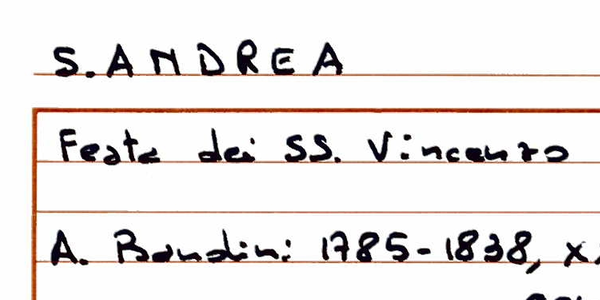 S. ANDREA
Festa dei SS. Vincenzo
A. Bandini 1785-1838, x